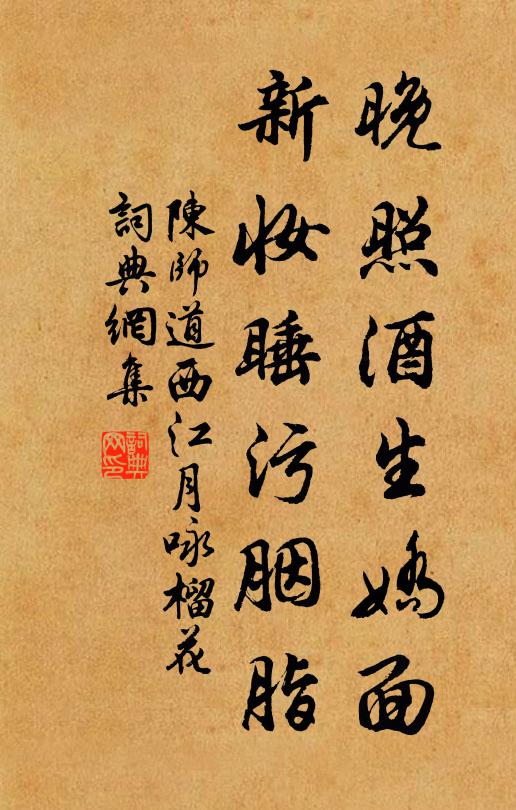 晚照酒生嬌面
新妝睡污胭脂
陳師道西江月咏榴花
詞典網集
詞典
网印